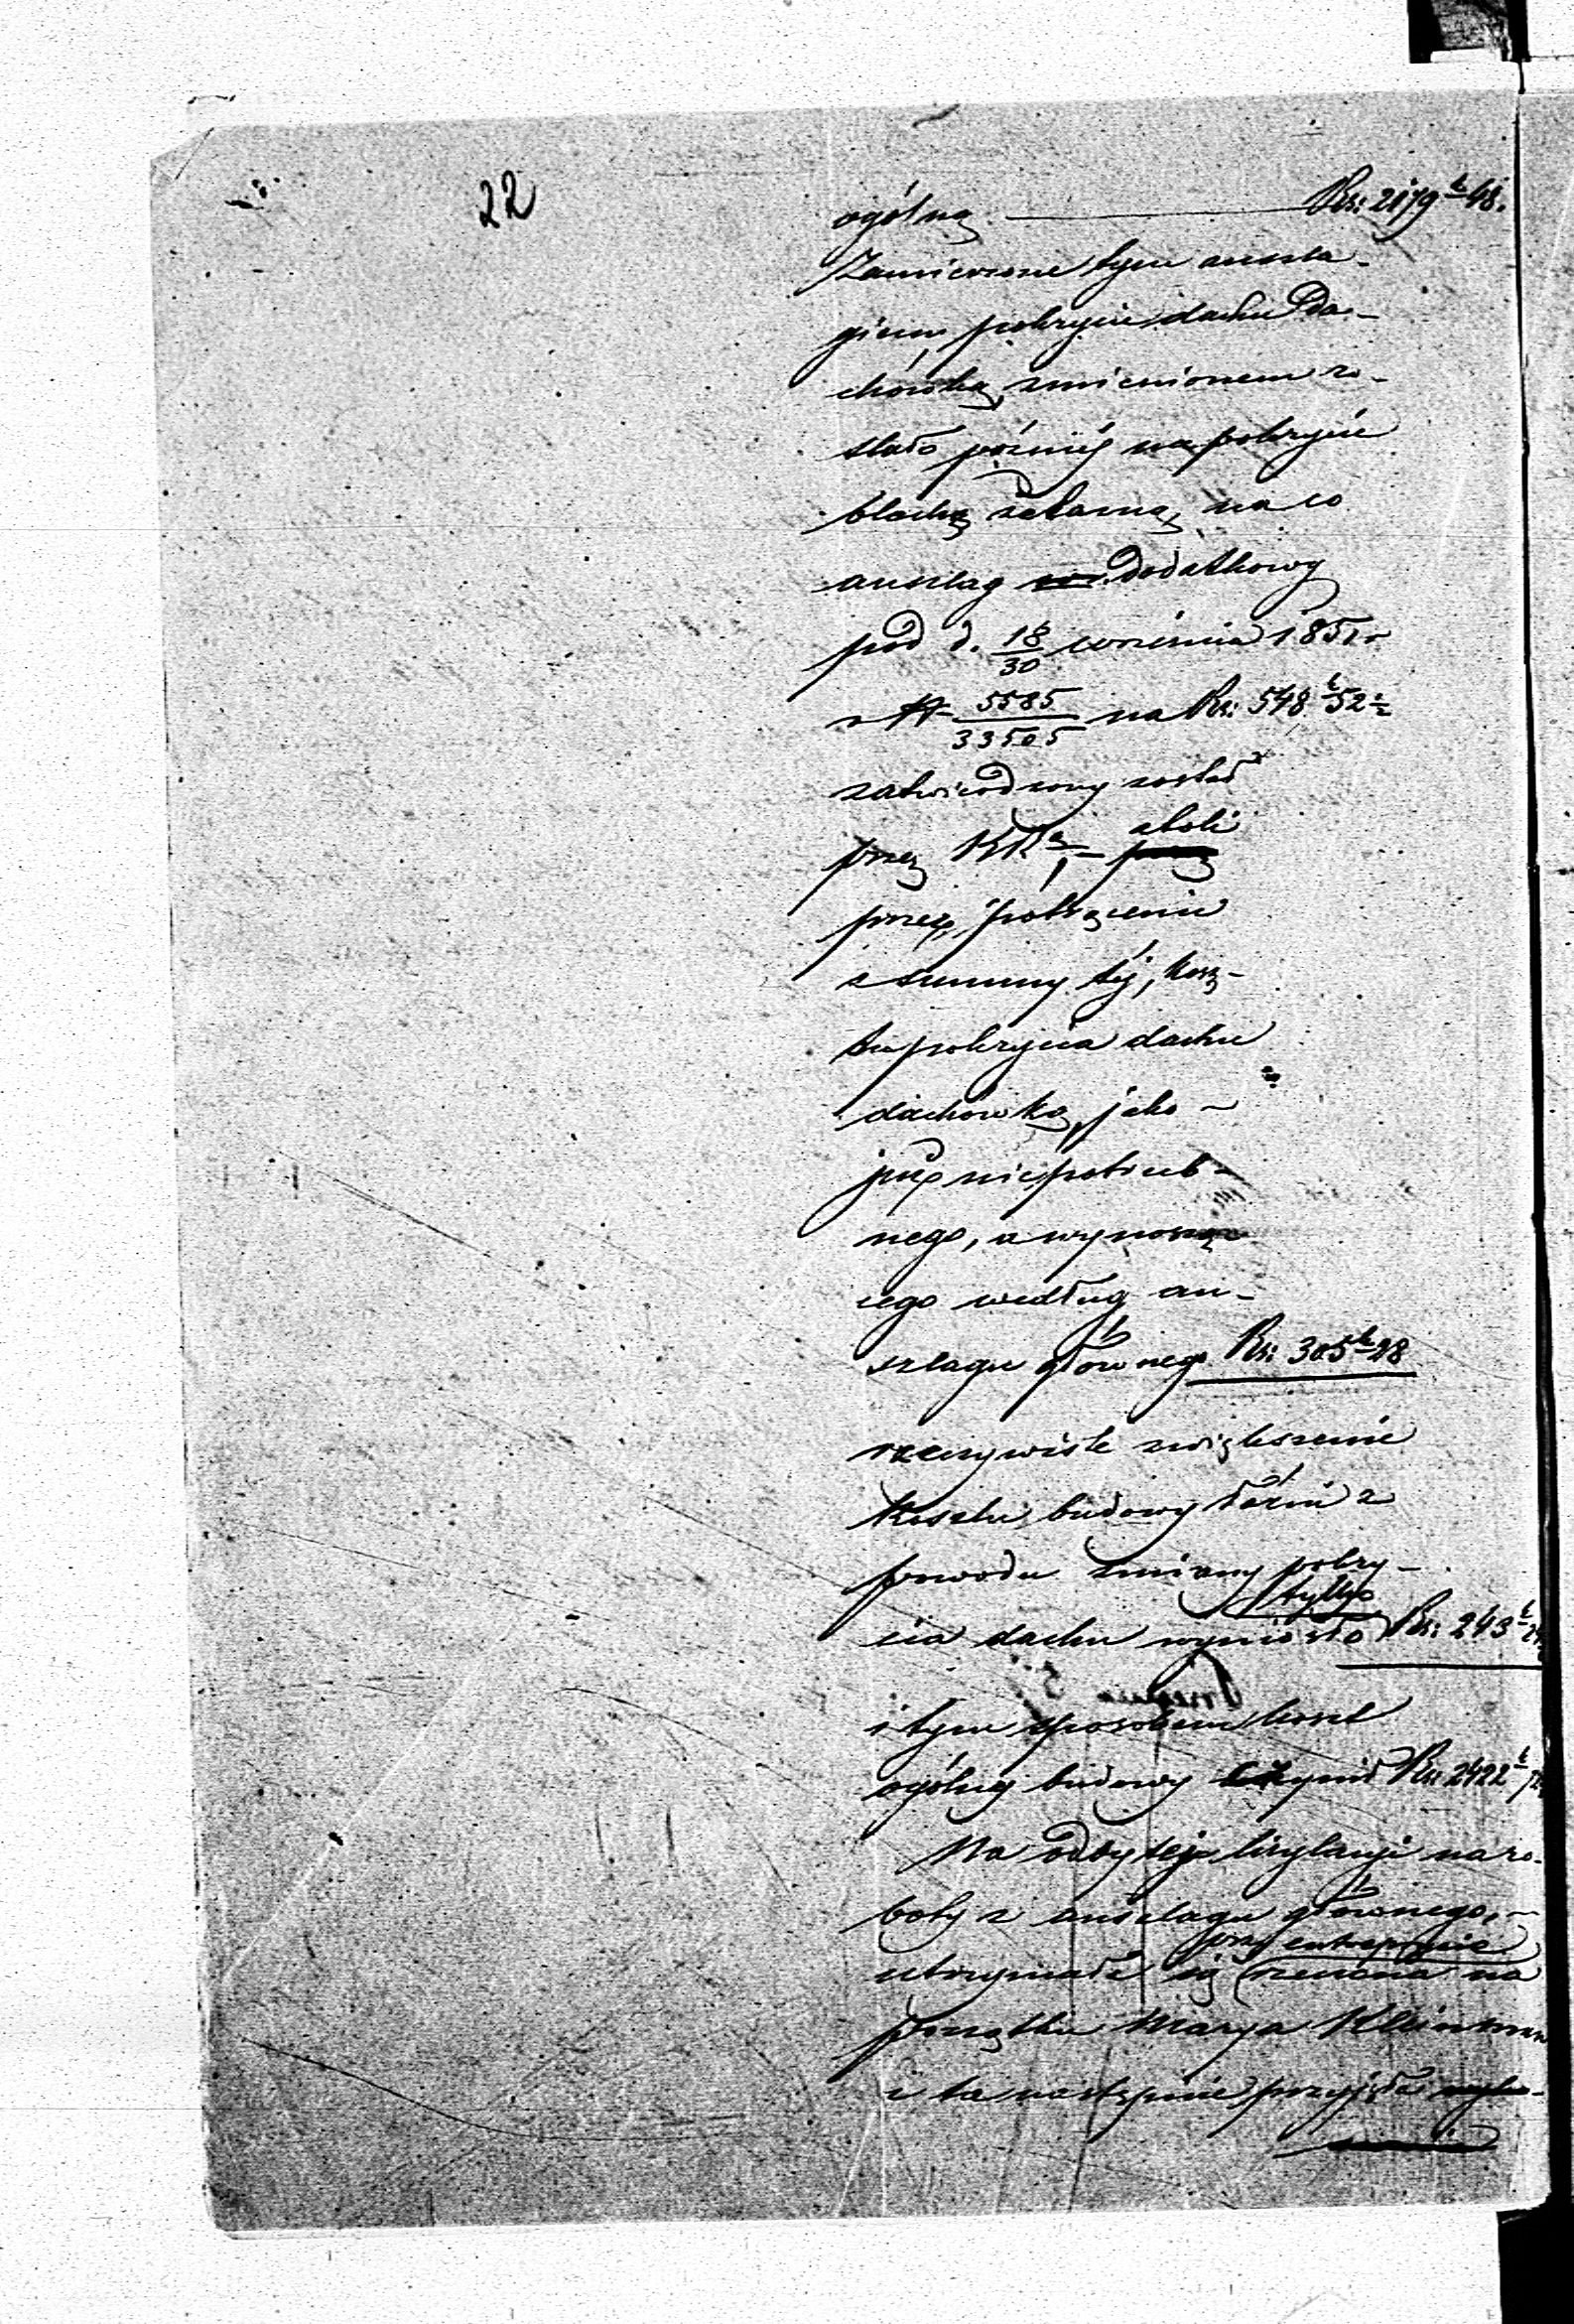 22
ogólną — Rs: 2179 k 48.
Zamierzone tym anszla-
giem pokrycie dachu Da-
chówką, zmienionem zo-
stało późniéj na pokrycie
blachą żelazną, na co
anszlag dodatkowy
pod d. 18/30 września 1851 r
N 5585/33505 na Rs: 548 k 52 ½
zatwierdzony został
przez KR
przez potrącenie
z summy téj, kosz-
tu pokrycia dachu
dachówką, jako -
już niepotrzeb-
nego, a wynoszą-
cego według an-
szlagu głównego Rs: 305 k 28
rzeczywiste zwiększenie
kosztu budowy łaźni z
powodu zmiany pokry-
tylko
cia dachu wyniosło Rs: 243 k 24
i tym sposobem koszt
ogólny budowy czynił Rs: 2422 k 72
Na odbytej licytacyi na ro-
boty z anszlagu głównego, -
przy entrepryzie
utrzymała się rzeczona na
początku Marya
i ta następnie przyjęła